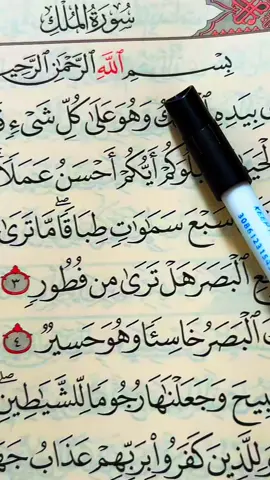 سُورَةُ الْمُلْكِ
بِسْمِ اللَّهِ الرَّحْمَٰنِ الرَّحِيمِ
بِيَدِهِ وَهُوَ عَلَىٰ كُلِّ شَىْءٍ
أَيُّكُمْ أَحْسَنُ عَمَلًا
سَبْعَ سَمَٰوَٰتٍ طِبَاقًا ۖ مَّا تَرَىٰ
الْبَصَرَ هَلْ تَرَىٰ مِن فُطُورٍ ٣
الْبَصَرُ خَاسِئًا وَهُوَ حَسِيرٌ ٤
وَجَعَلْنَٰهَا رُجُومًا لِّلشَّيَٰطِينِ ۖ
لِلَّذِينَ كَفَرُوا۟ بِرَبِّهِمْ عَذَابُ